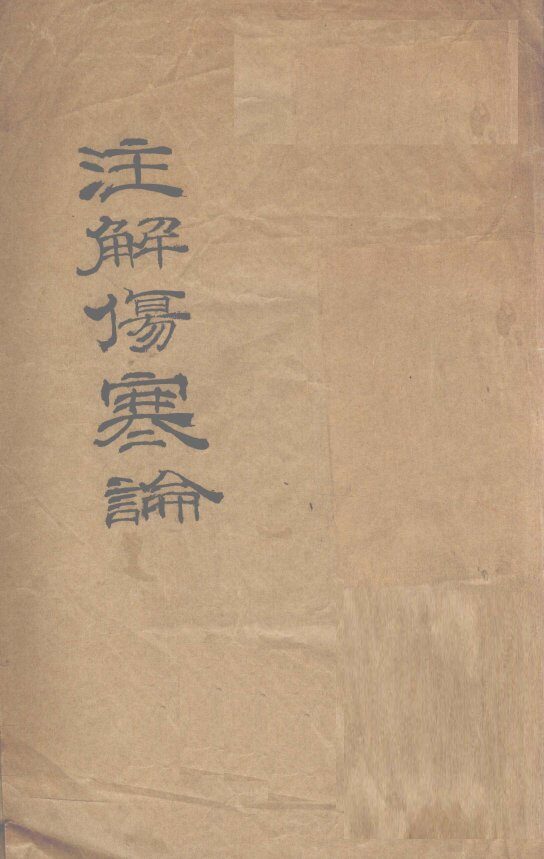 注解傷寒論